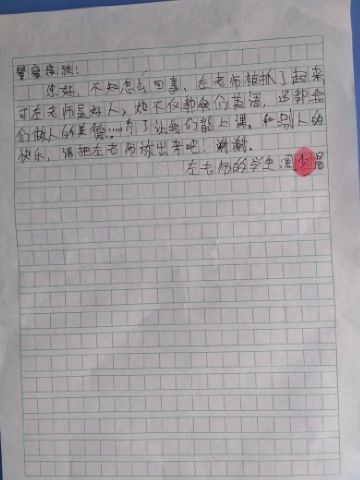 警察叔叔：
您好，不知怎么回事，左老师被抓了起来
可左老师是好人，她不仅教会我们英语，还教会
们做人的美德……为了让我们能上课，和别人的
快乐，请把左老师放出来吧！谢谢。
左老师的学生周少昌